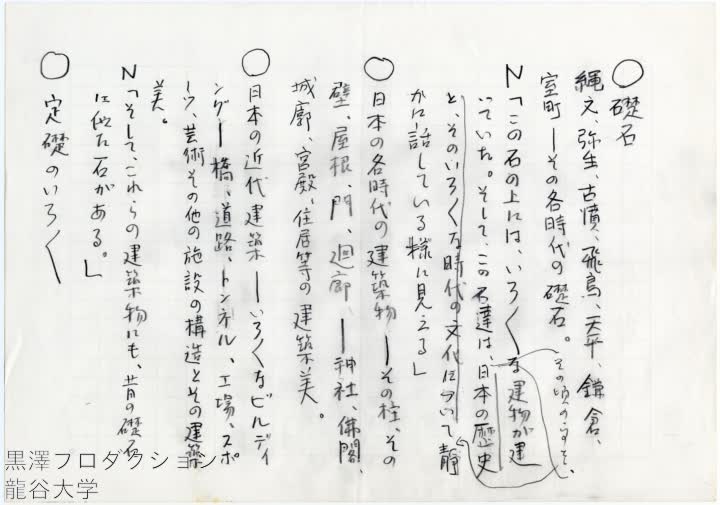 ○礎石
縄文、弥生、古墳、飛鳥、天平、鎌倉、
室町―その各時代の礎石。
N「この石の上には、いろ〱な建物が建
っていた。そして、この石達は、日本の歴史
と、そのいろ〱な時代の文化について静
かに話している様に見える」
その頃の
○日本の各時代の建築物―その柱、その
壁、屋根、門、廻廊、―神社、佛閣、
城廓、宮殿、住居等の建築美。
○日本の近代建築―いろ〱なビルディ
ング―橋、道路、トンネル、工場、スポ
ーツ、芸術その他の施設の構造とその建築
美。
N「そして、これらの建築物にも、昔の礎石
に似た石がある。」
○定礎のいろ〱
黒澤プロダクション
龍谷大学